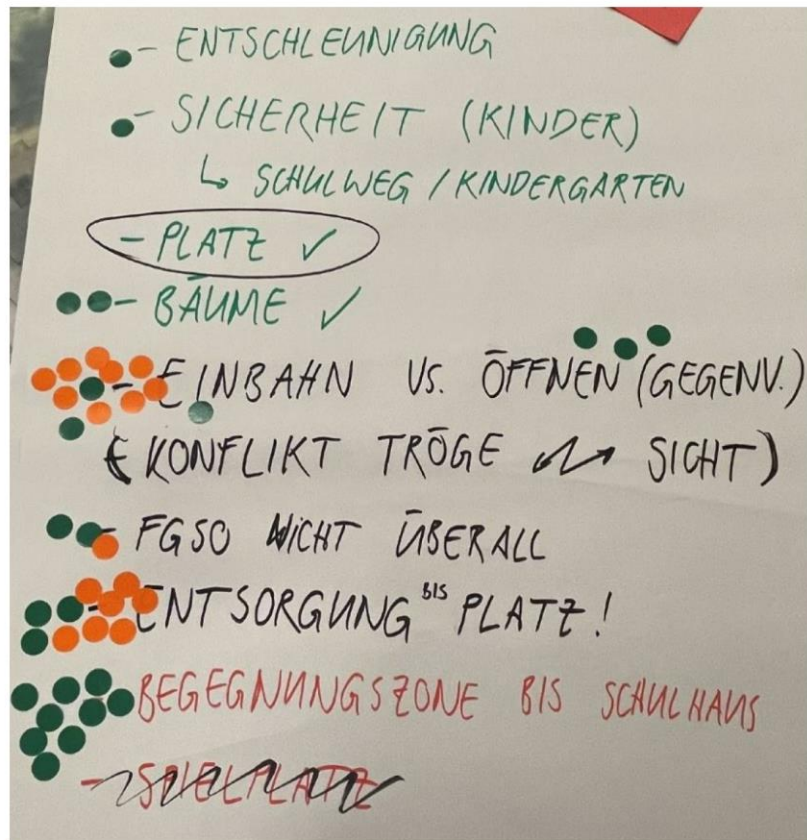 - ENTSCHLEUNIGUNG
- SICHERHEIT (KINDER)
↳ SCHULWEG / KINDERGARTEN
- PLATZ ✓
- BÄUME ✓
- EINBAHN VS. ÖFFNEN (GEGENV.)
(KONFLIKT TRÖGE ↔ SICHT)
- FGSO NICHT ÜBERALL
- ENTSORGUNG BIS PLATZ!
BEGEGNUNGSZONE BIS SCHULHAUS
- SPIELPLATZ